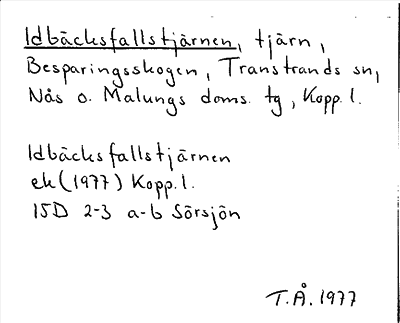 Idbäcksfallstjärnen, tjärn,
Besparingsskogen, Transtrands sn,
Nås o. Malungs doms. tg, Kopp. l.
Idbäcksfallstjärnen
ek (1977) Kopp. l.
15D 2-3 a-b Sörsjön
T.Å. 1977